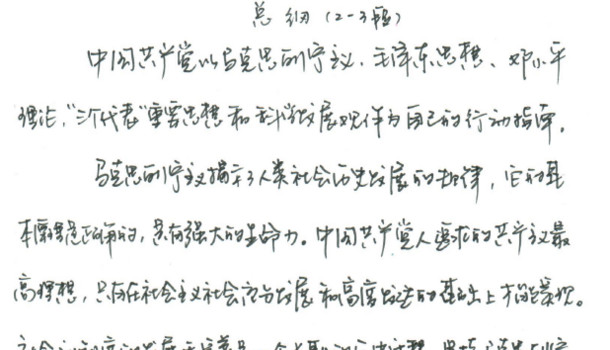 总纲（2-3段）
中国共产党以马克思列宁主义、毛泽东思想、邓小平
理论、“三个代表”重要思想和科学发展观作为自己的行动指南。
马克思列宁主义揭示了人类社会历史发展的规律，它的基
本原理是正确的，具有强大的生命力。中国共产党人追求的共产主义最
高理想，只有在社会主义社会充分发展和高度发达的基础上才能实现。
社会主义